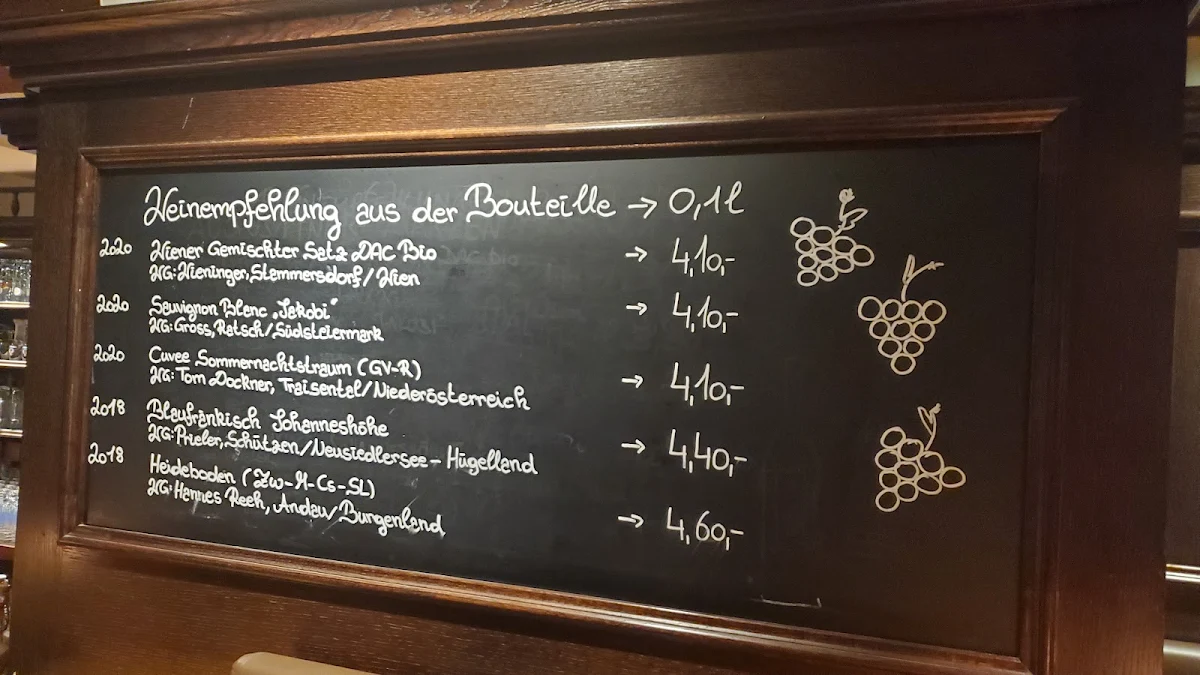 Weinempfehlung aus der Bouteille → 0,1l
2020 Wiener Gemischter Satz DAC Bio → 4,10,-
WG: Wieninger, Stammersdorf / Wien
2020 Sauvignon Blanc „Jakobi" → 4,10,-
WG: Gross, Ratsch / Südsteiermark
2020 Cuvee Sommernachtstraum (GV-R)
WG: Tom Dockner, Traisental / Niederösterreich → 4,10,-
2018 Blaufränkisch Johanneshöhe
WG: Prieler, Schützen / Neusiedlersee - Hügelland → 4,40,-
2018 Heideboden (Zw-M-Cs-SL)
WG: Hannes Reeh, Andau / Burgenland → 4,60,-